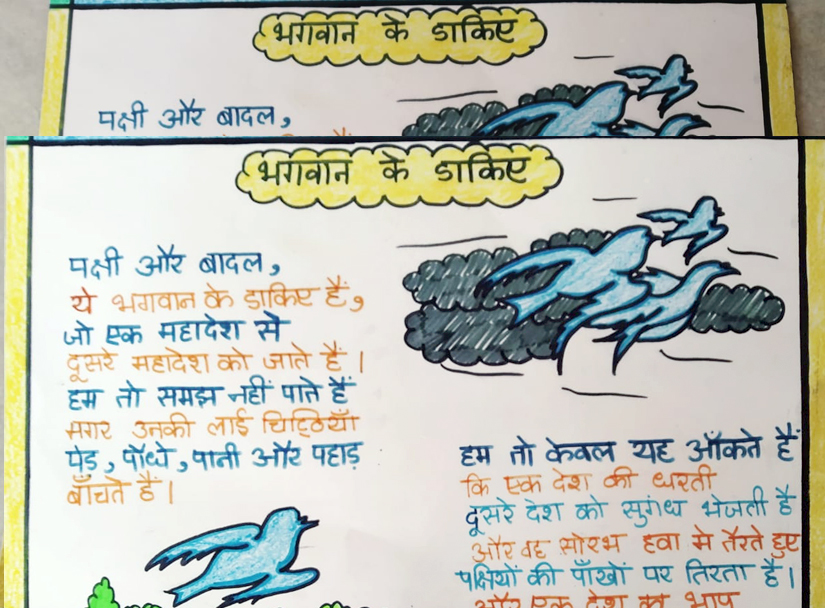 भगवान के डाकिए
पक्षी और बादल,
भगवान के डाकिए
पक्षी और बादल,
ये भगवान के डाकिए हैं,
जो एक महादेश से
दूसरे महादेश को जाते हैं ।
हम तो समझ नहीं पाते हैं
मगर उनकी लाई चिट्ठियाँ
पेड़, पौधे, पानी और पहाड़
बाँचते हैं ।
हम तो केवल यह आँकते हैं
कि एक देश की धरती
दूसरे देश को सुगंध भेजती है
और वह सोरभ हवा मे तैरते हुए
पक्षियों की पाँखों पर तिरता है ।
और एक देश का भाप